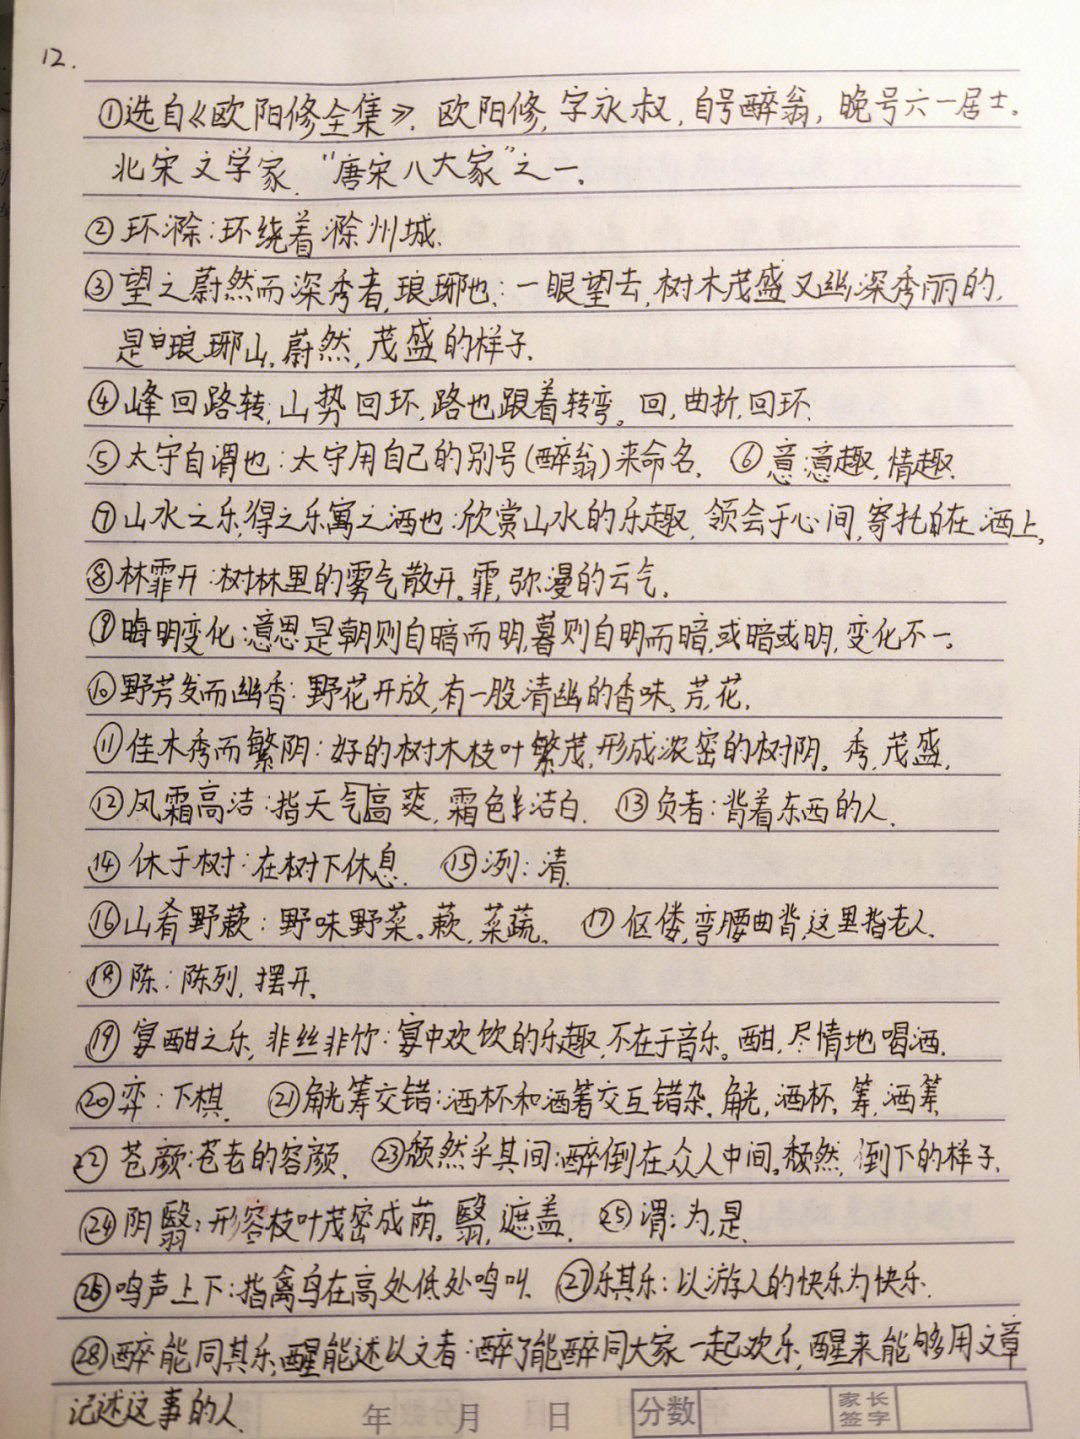 12.
①选自《欧阳修全集》.欧阳修,字永叔,自号醉翁,晚号六一居士.
北宋文学家."唐宋八大家"之一.
②环滁:环绕着滁州城.
③望之蔚然而深秀者,琅琊也:一眼望去,树木茂盛又幽深秀丽的,
是琅琊山,蔚然,茂盛的样子.
④峰回路转,山势回环,路也跟着转弯。回,曲折,回环.
⑤太守自谓也:太守用自己的别号(醉翁)来命名. ⑥意:意趣,情趣.
⑦山水之乐,得之乐寓之酒也:欣赏山水的乐趣,领会于心间,寄托在酒上,
⑧林霏开:树林里的雾气散开。霏,弥漫的云气.
⑨晦明变化:意思是朝则自暗而明,暮则自明而暗,或暗或明,变化不一.
⑩野芳发而幽香:野花开放,有一股清幽的香味。芳,花.
⑪佳木秀而繁阴:好的树木枝叶繁茂,形成浓密的树阴。秀,茂盛.
⑫风霜高洁:指天气高爽,霜色洁白. ⑬负者:背着东西的人.
⑭休于树:在树下休息. ⑮洌:清.
⑯山肴野蔌:野味野菜。蔌,菜蔬. ⑰伛偻,弯腰曲背,这里指老人.
⑱陈:陈列,摆开.
⑲宴酣之乐,非丝非竹:宴中欢饮的乐趣,不在于音乐。酣,尽情地喝酒.
⑳弈:下棋. ㉑觥筹交错:酒杯和酒筹交互错杂.觥,酒杯.筹,酒筹
㉒苍颜:苍老的容颜. ㉓颓然乎其间:醉倒在众人中间。颓然,倒下的样子.
㉔阴翳:形容枝叶茂密成荫。翳,遮盖. ㉕谓:为,是.
㉖鸣声上下:指禽鸟在高处低处鸣叫. ㉗乐其乐:以游人的快乐为快乐.
㉘醉能同其乐,醒能述以文者:醉了能醉同大家一起欢乐,醒来能够用文章
记述这事的人.
年 月 日 分数 家长签字